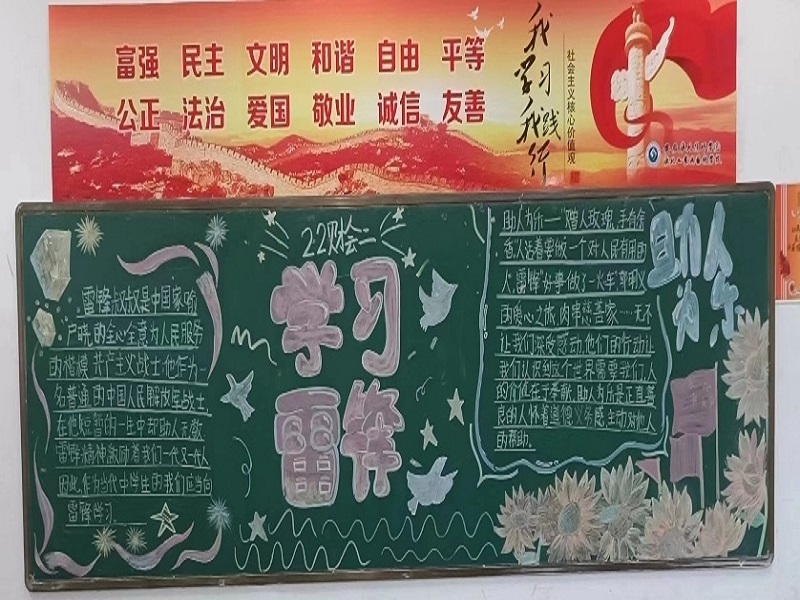 富强 民主 文明 和谐 自由 平等
公正 法治 爱国 敬业 诚信 友善
我学习
我践行
社会主义核心价值观
22财会二
学习
雷锋
雷锋叔叔是中国家喻
户晓的全心全意为人民服务
的楷模,共产主义战士,他作为一
名普通的中国人民解放军战士,
在他短暂的一生中却助人无数,
雷锋精神激励着我们一代又一代人
因此,作为当代中学生的我们应当向
雷锋学习
助人为乐
助人为乐一赠人玫瑰,手有余
香人活着要做一个对人民有用的
人,雷锋"好事做了一火车"郭明义
的爱心之旅,肉串慈善家……无不
让我们深受感动,他们的行动让
我们认识到这个世界需要我们,人
的价值在于奉献,助人为乐是正直善
良的人怀着道德义务感,主动对他人
的帮助。